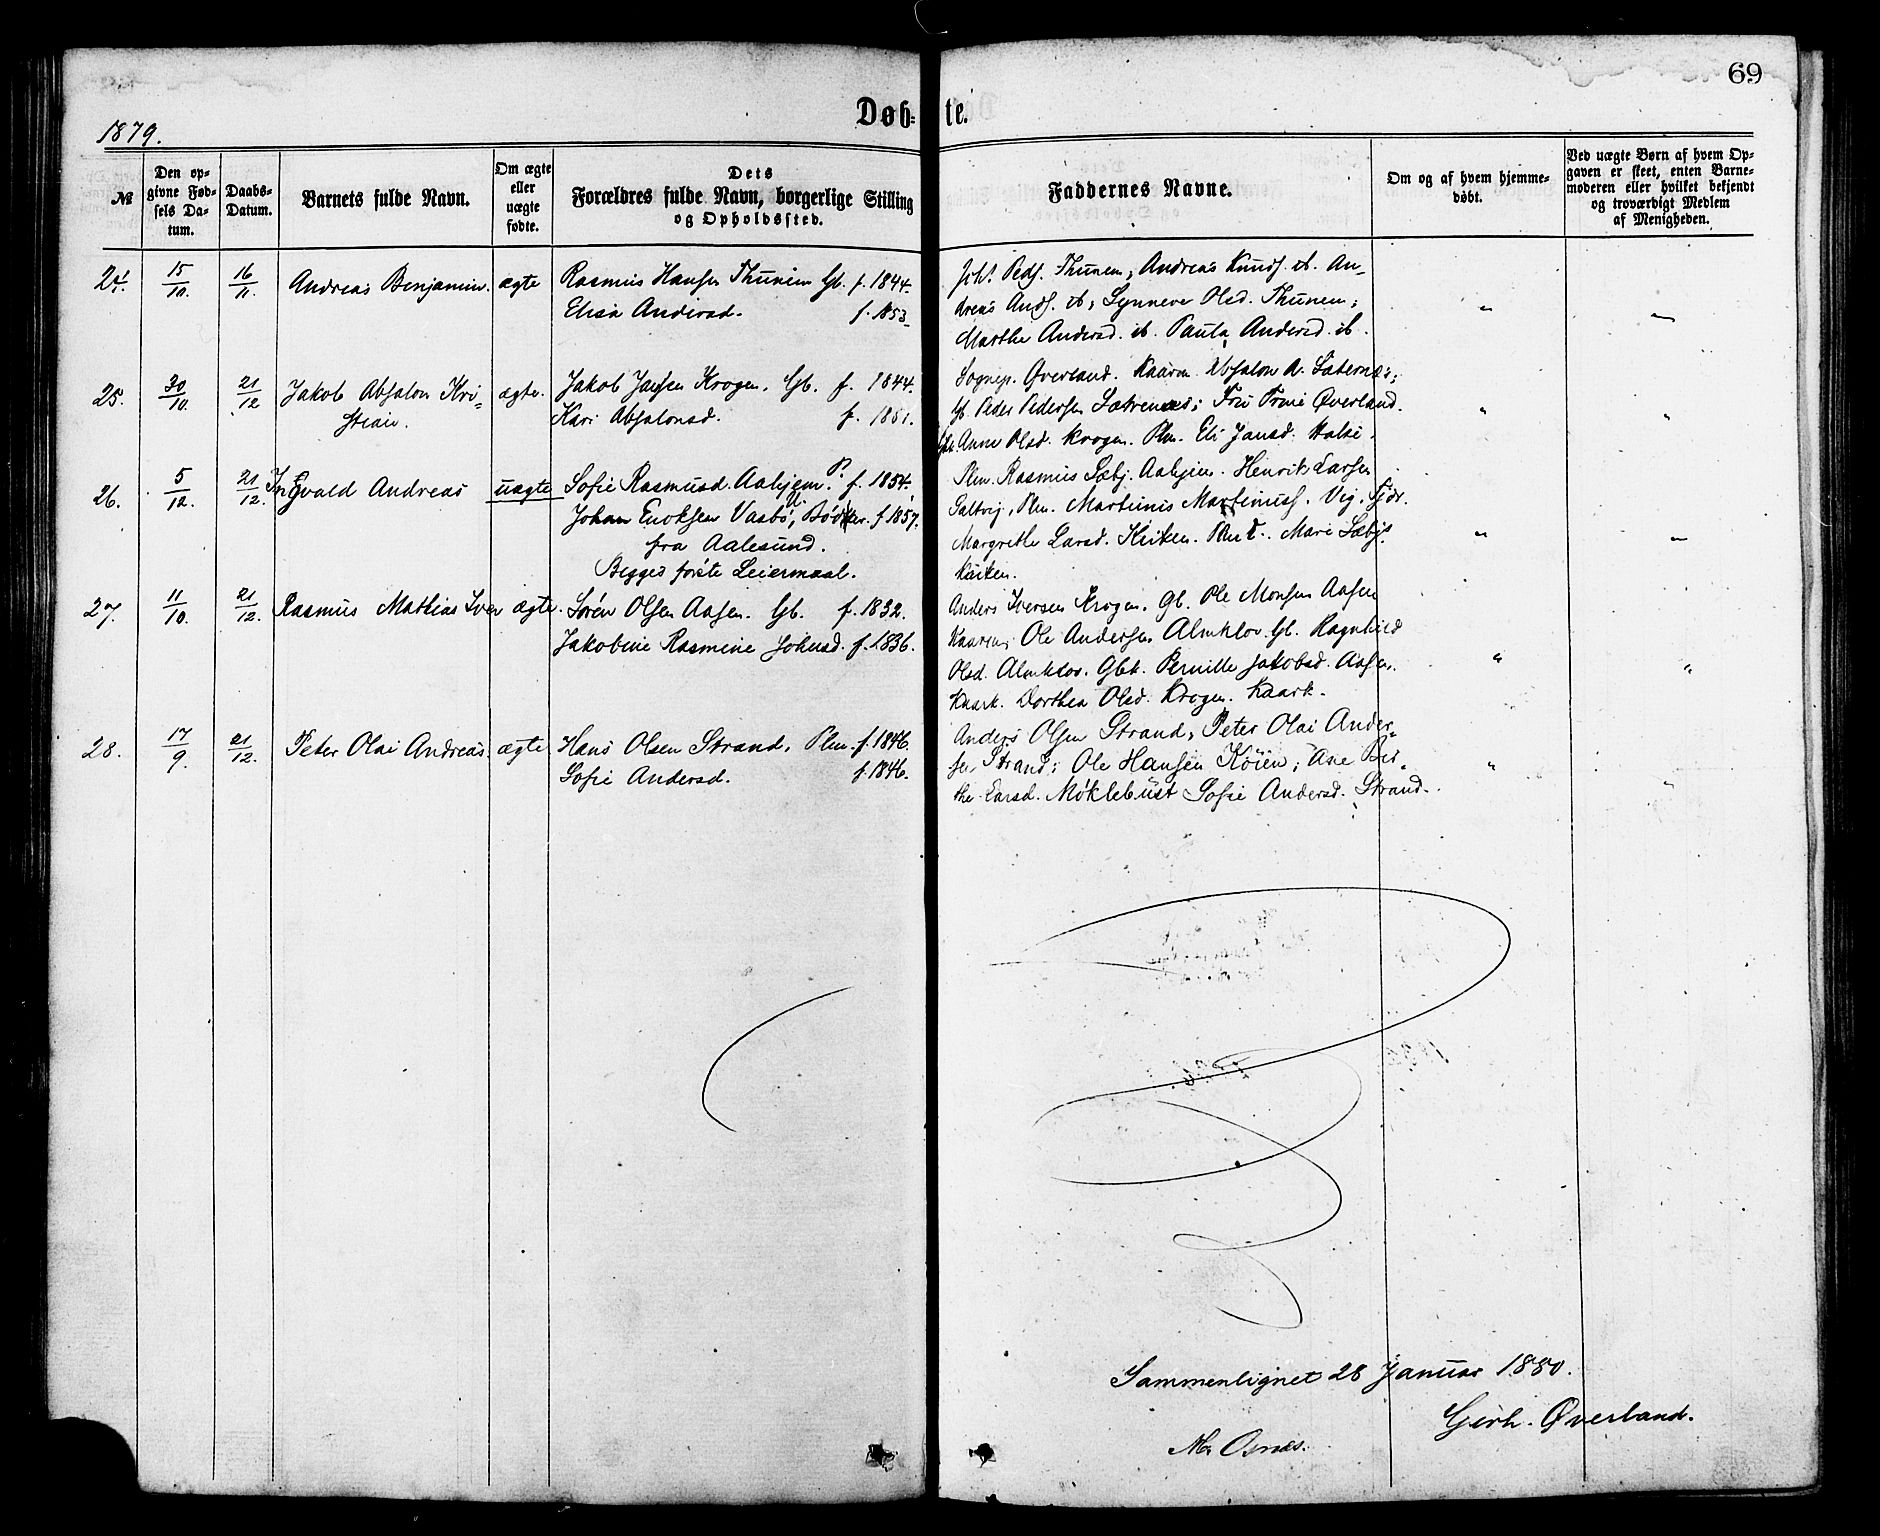 69
Døb-te.
1879.
№
Den op-
givne Fød-
sels Da-
tum.
Daabs-
Datum.
Barnets fulde Navn.
Om ægte
eller
uægte
fødte.
Dets
Forældres fulde Navn, borgerlige Stilling
og Opholdssted.
Faddernes Navne.
Om og af hvem hjemme-
døbt.
Ved uægte Børn af hvem Op-
gaven er skeet, enten Barne-
moderen eller hvilket bekjendt
og troværdigt Medlem
af Menigheden.
24. 15/10. 16/11. Andreas Benjamin. ægte Rasmus Hansen Thunem Gb. f. 1844.
Elisa Andersd. f. 1853.
Joh. Peds. Thunem, Andreas Knuds. ib. An-
dreas Ands. ib; Synneve Olsd. Thunem;
Marthe Andersd. ib. Paula Andersd. ib.
" "
25. 30/10. 21/12 Jakob Absalon Kri-
stian. ægte. Jakob Jansen Krogen. Gb. f. 1844.
Kari Absalonsd. f. 1851.
Sognep. Øverland. Kaarm. Absalon A. Sæternes;
Gb. Peder Pedersen Sætrenes; Fru Øverland.
Gbk. Anne Olsd. Krogen. Pln. Eli Jansd.
" "
26. 5/12. 21/12. Ingvald Andreas uægte Sofie Rasmusd. Aahjem P. f. 1854.
Johan Enoksen Vasbö, U. Bödker. f. 1857.
fra Aalesund.
Begges förste Leiermaal.
Plm. Rasmus Sæbj. Aahjem. Henrik Larsen
Saltvig, Plm. Martinus Martinuss. Vig.
Margrethe Larsd. Kviken. Mari Sæbj.
" "
27. 11/10. 21/12. Rasmus Mathias Iver ægte. Sören Olsen Aasen. Gb. f. 1832.
Jakobine Rasmine Johnsd. f. 1836.
Anders Iversen Krogen. Gb. Ole Monsen Aasen
Kaarm; Ole Andersen Almklov Gb. Ragnhild
Olsd. Almklov. Gbk. Pernille Jakobsd. Aasen.
Kaark. Dorthea Olsd. Krogen. Kaark.
" "
28. 17/9. 21/12. Peter Olai Andreas. ægte Hans Olsen Strand, Plm. f. 1846.
Sofie Andersd. f. 1846.
Anders Olsen Strand, Peter Olai Ander-
sen Strand; Ole Hansen Köien; Ane Ber-
the Larsd. Möklebust Sofie Andersd. Strand.
" "
Sammenlignet 28 Januar 1880.
Gerh. Øverland.
M. Osnes.